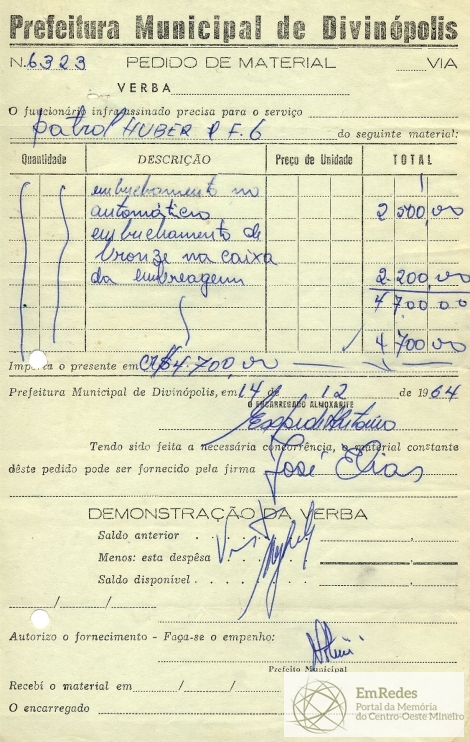 Prefeitura Municipal de Divinópolis
N. 6323 PEDIDO DE MATERIAL VIA
VERBA
O funcionário infra-assinado precisa para o serviço
patrol HUBER P F. 6 do seguinte material:
Quantidade DESCRIÇÃO Preço de Unidade TOTAL
embuchamento no
automático 2 500,00
embuchamento de
bronze na caixa
da embreagem 2.200,00
4 700 00
4 700,00
Importa o presente em CR$4.700,00
Prefeitura Municipal de Divinópolis, em 14 de 12 de 1964
O ENCARREGADO ALMOXARIFE
Tendo sido feita a necessária concorrência, o material constante
dêste pedido pode ser fornecido pela firma José Elias
DEMONSTRAÇÃO DA VERBA
Saldo anterior
Menos: esta despêsa
Saldo disponível
Autorizo o fornecimento - Faça-se o empenho:
Prefeito Municipal
Recebi o material em
O encarregado
EmRedes
Portal da Memória
do Centro-Oeste Mineiro